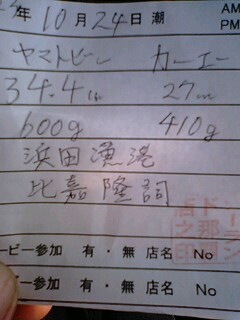 年 10月24日 潮 AM
PM
ヤマトビー カーエー
34.4cm 27cm
600g 410g
浜田漁港
比嘉隆詞
ービー参加 有・無 店名 No
ビー参加 有・無 店名 No